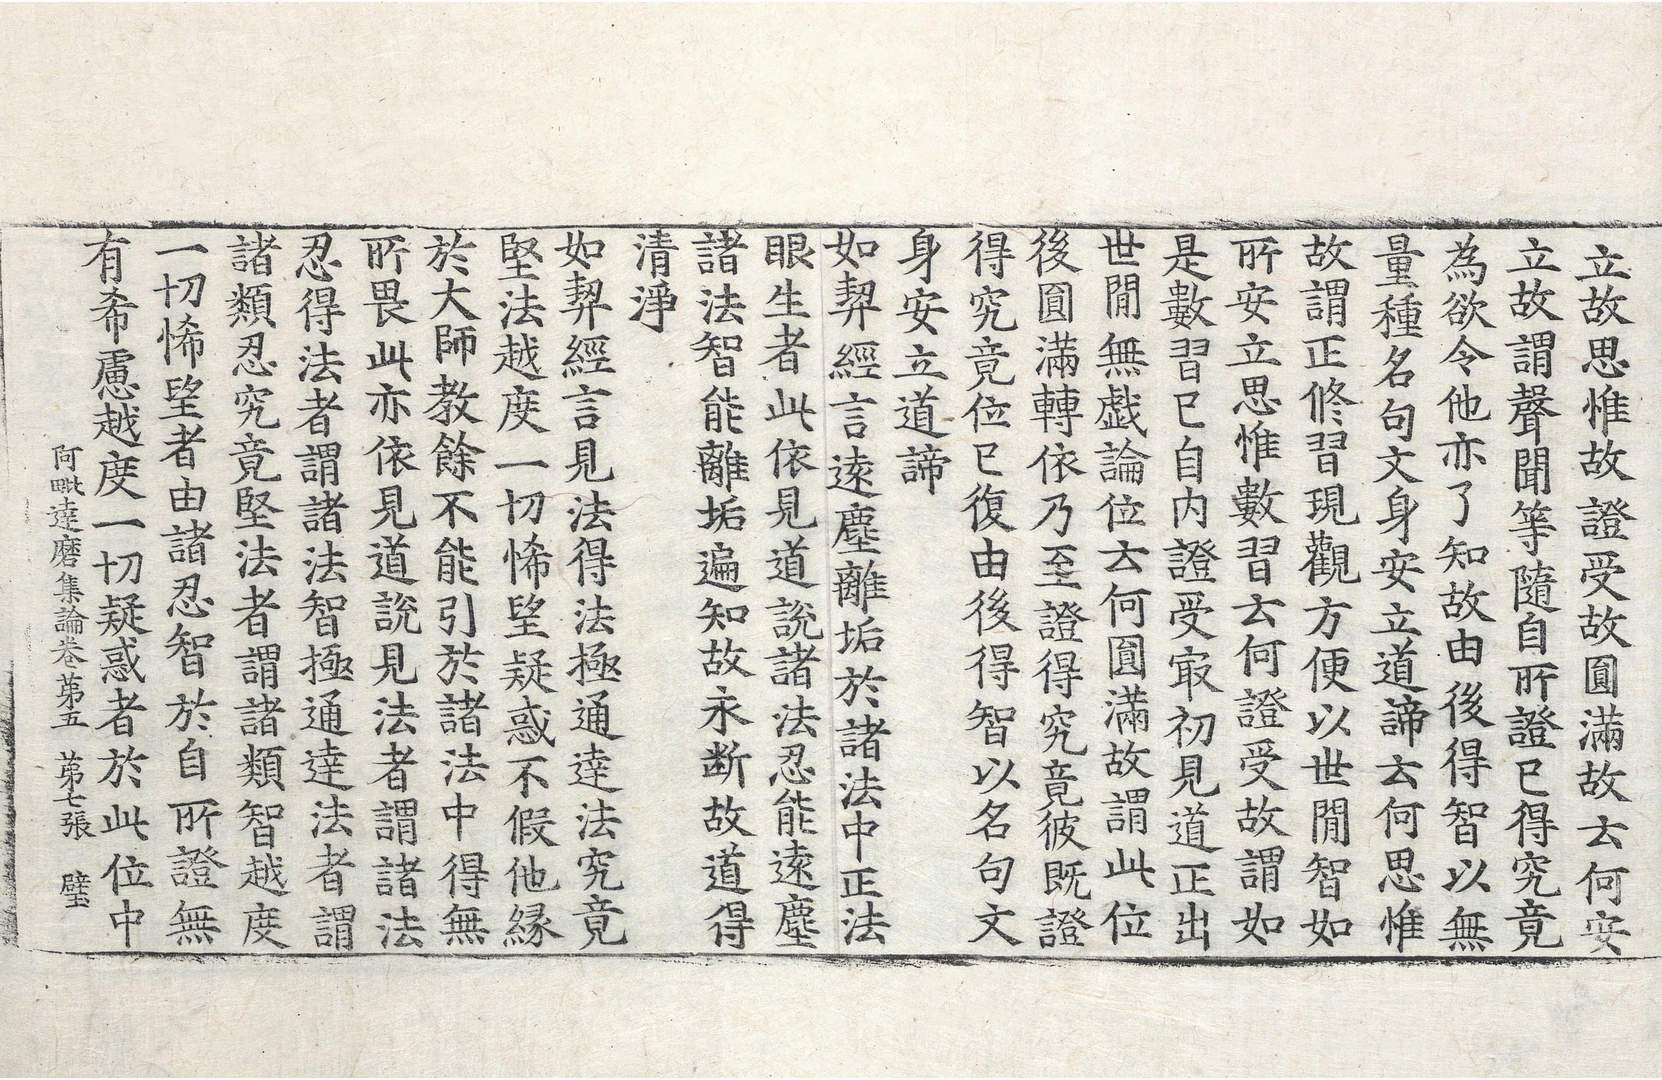 立故思惟故證受故圓滿故云何安
立故謂聲聞等隨自所證已得究竟
為欲令他亦了知故由後得智以無
量種名句文身安立道諦云何思惟
故謂正修習現觀方便以世間智如
所安立思惟數習云何證受故謂如
是數習已自内證受㝡初見道正出
世間無戱論位云何圓滿故謂此位
後圓滿轉依乃至證得究竟彼既證
得究竟位已復由後得智以名句文
身安立道諦
如契經言遠塵離垢於諸法中正法
眼生者此依見道說諸法忍能遠塵
諸法智能離垢遍知故永断故道得
清淨
如契經言見法得法極通達法究竟
堅法越度一切悕望疑惑不假他縁
於大師教餘不能引於諸法中得無
所畏此亦依見道說見法者謂諸法
忍得法者謂諸法智極通達法者謂
諸類忍究竟堅法者謂諸類智越度
一切悕望者由諸忍智於自所證無
有希慮越度一切疑惑者於此位中
阿毗達磨集論卷第五 第七張 壁